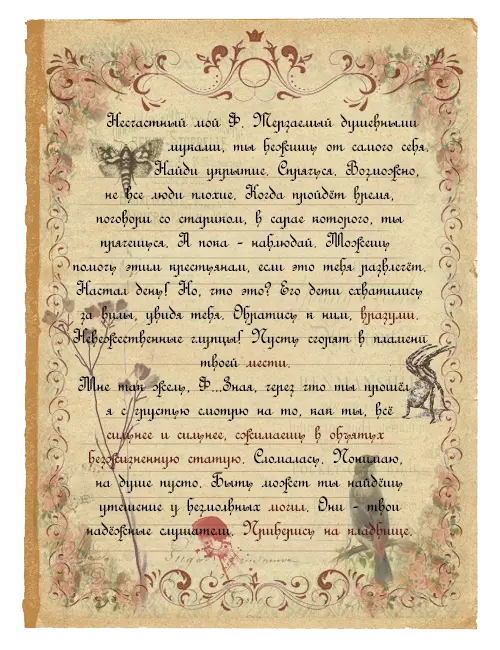 Несчастный мой Ф. Терзаемый душевными
муками, ты бежишь от самого себя.
Найди укрытие. Спрячься. Возможно,
не все люди плохие. Когда пройдёт время,
поговори со стариком, в сарае которого, ты
прячешься. А пока - наблюдай. Можешь
помочь этим крестьянам, если это тебя развлечёт.
Настал день! Но, что это? Его дети схватились
за вилы, увидя тебя. Обратись к ним, вразуми.
Невежественные глупцы! Пусть сгорят в пламени
твоей мести.
Мне так жель, Ф...Зная, через что ты прошёл,
я с грустью смотрю на то, как ты, всё
сильнее и сильнее, сжимаешь в объятых
безжизненную статую. Сломалась. Понимаю,
на душе пусто. Быть может ты найдёшь
утешение у безмолвных могил. Они - твои
надёжные слушатели. Приберись на кладбище.